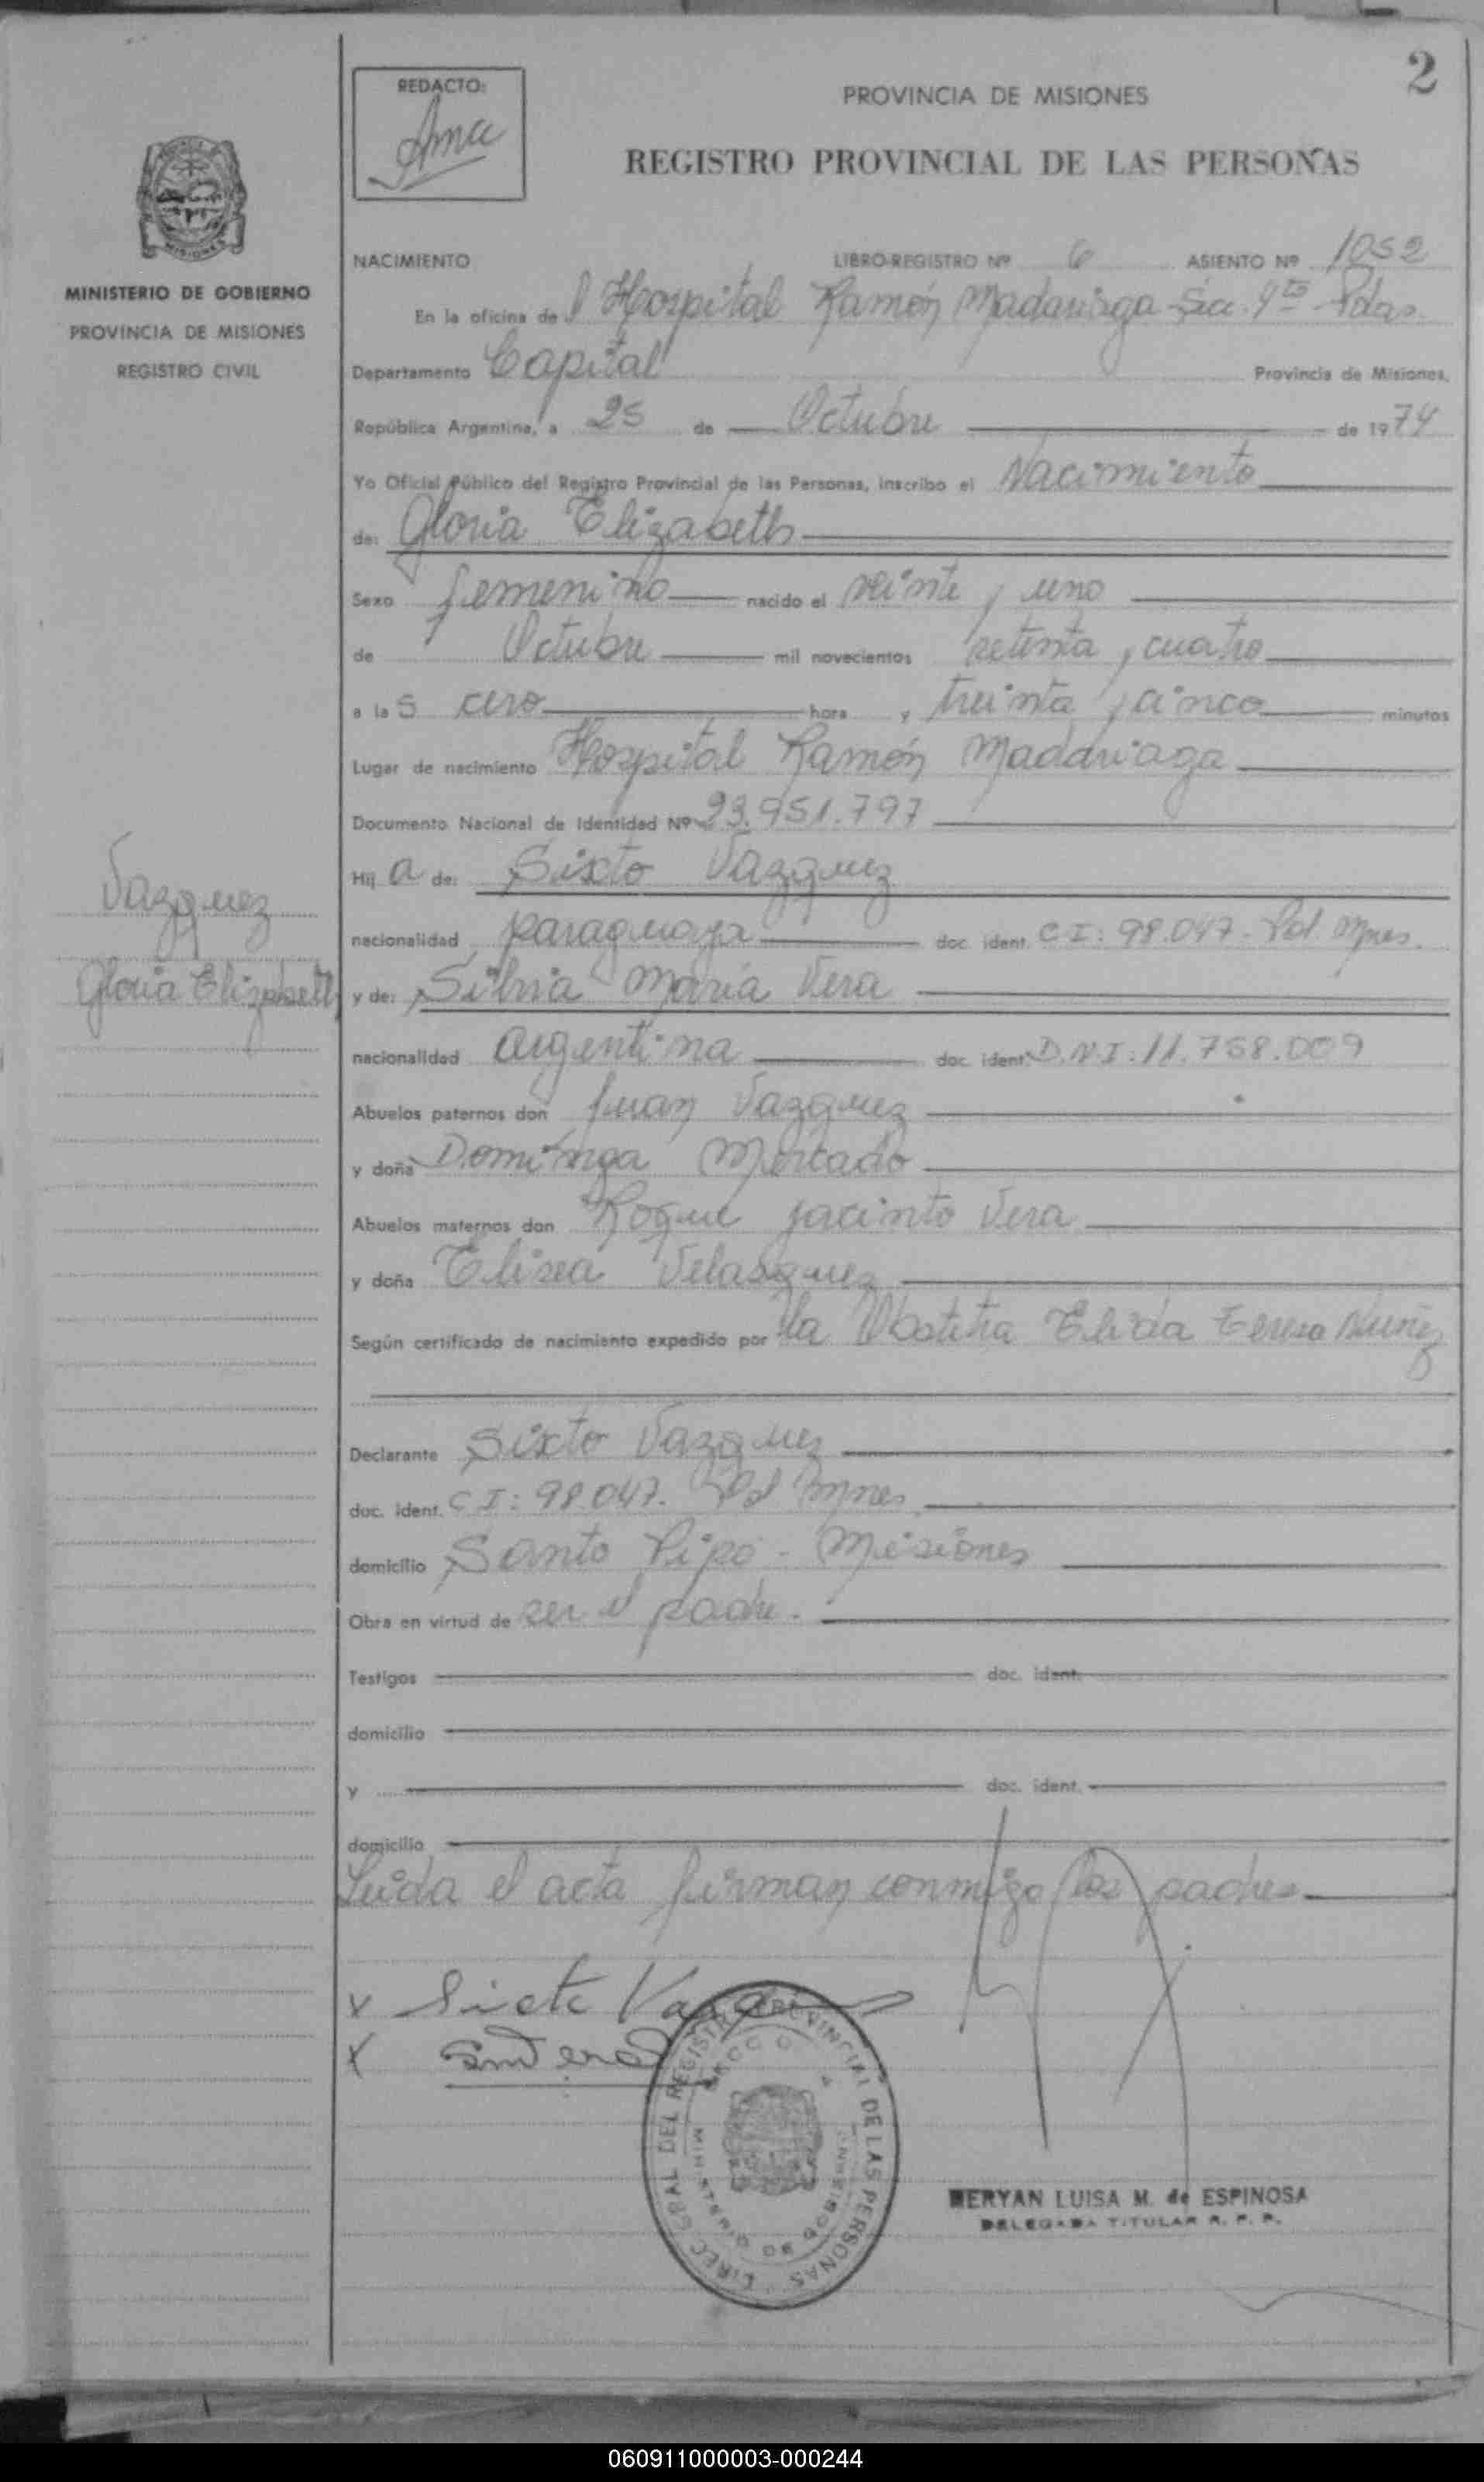 2
REDACTO:
PROVINCIA DE MISIONES
REGISTRO PROVINCIAL DE LAS PERSONAS
MINISTERIO DE GOBIERNO
PROVINCIA DE MISIONES
REGISTRO CIVIL
NACIMIENTO LIBRO-REGISTRO Nº 6 ASIENTO Nº 1052
En la oficina del Hospital Ramón Madariaga Sec. 4ta Pdas.
Departamento Capital Provincia de Misiones,
República Argentina, a 25 de Octubre de 1974
Yo Oficial Público del Registro Provincial de las Personas, inscribo el Nacimiento
de: Gloria Elizabeth
Sexo femenino nacido el veinte y uno
de Octubre mil novecientos setenta y cuatro
a las cero hora y treinta y cinco minutos
Lugar de nacimiento Hospital Ramón Madariaga
Documento Nacional de Identidad Nº 23.951.797
Hija de: Sixto Vazquez
nacionalidad paraguaya doc. ident. C.I: 98.047. Pol. Mnes.
y de: Silvia María Vera
nacionalidad argentina doc. ident. D.N.I: 11.758.009
Abuelos paternos don Juan Vazquez
y doña Dominga Mercado
Abuelos maternos don Roque Jacinto Vera
y doña Elisea Velasquez
Según certificado de nacimiento expedido por la Obstetra Elida Teresa Nuñez
Declarante Sixto Vazquez
doc. ident. C I: 98.047. Pol Mnes
domicilio Santo Pipó - Misiones
Obra en virtud de ser el padre.
Testigos doc. ident.
domicilio
y doc. ident.
domicilio
Leída el acta firman conmigo los padres
Vazquez
Gloria Elizabeth
x Sixto Vazq
x
DIREC. GRAL DEL REGISTRO PROVINCIAL DE LAS PERSONAS
MINISTERIO DE GOBIERNO
MERYAN LUISA M. de ESPINOSA
DELEGADA TITULAR R. P. P.
060911000003-000244